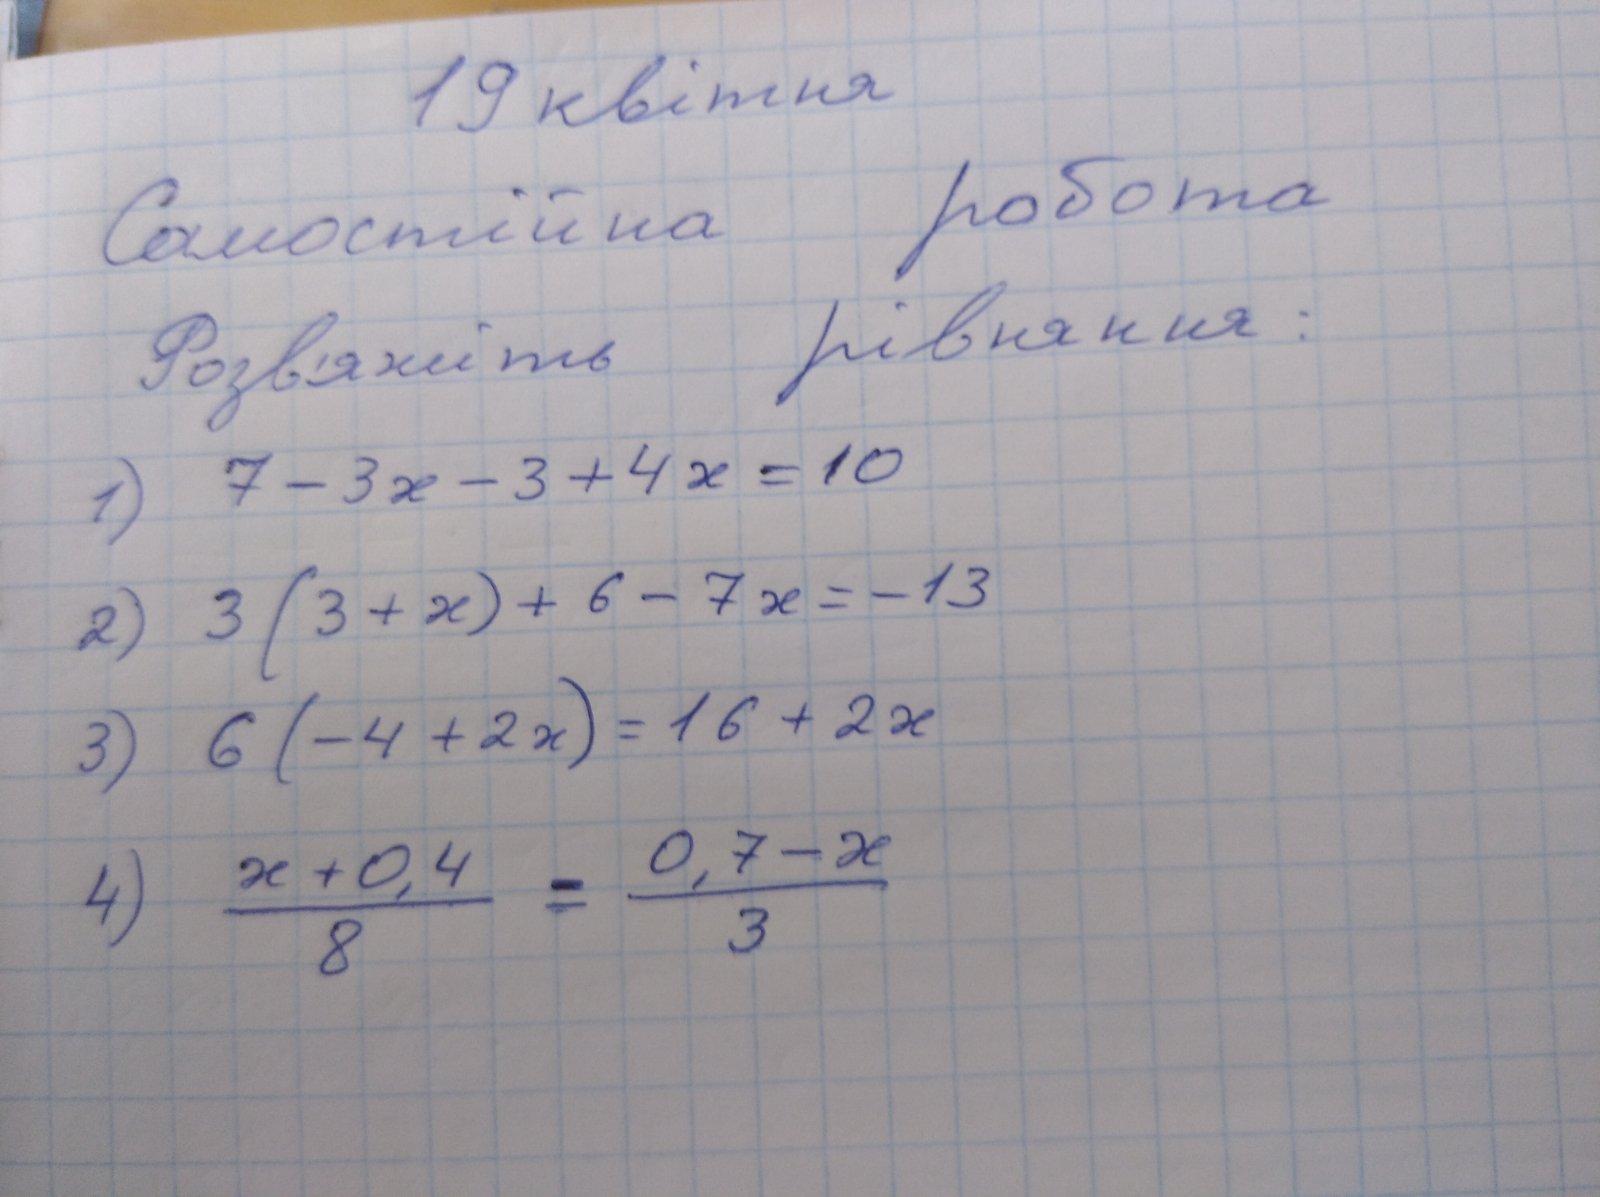 19 квітня
Самостійна робота
Розв'яжіть рівняння:
1) 7 - 3x - 3 + 4x = 10
2) 3(3 + x) + 6 - 7x = -13
3) 6(-4 + 2x) = 16 + 2x
4) (x + 0,4)/8 = (0,7 - x)/3